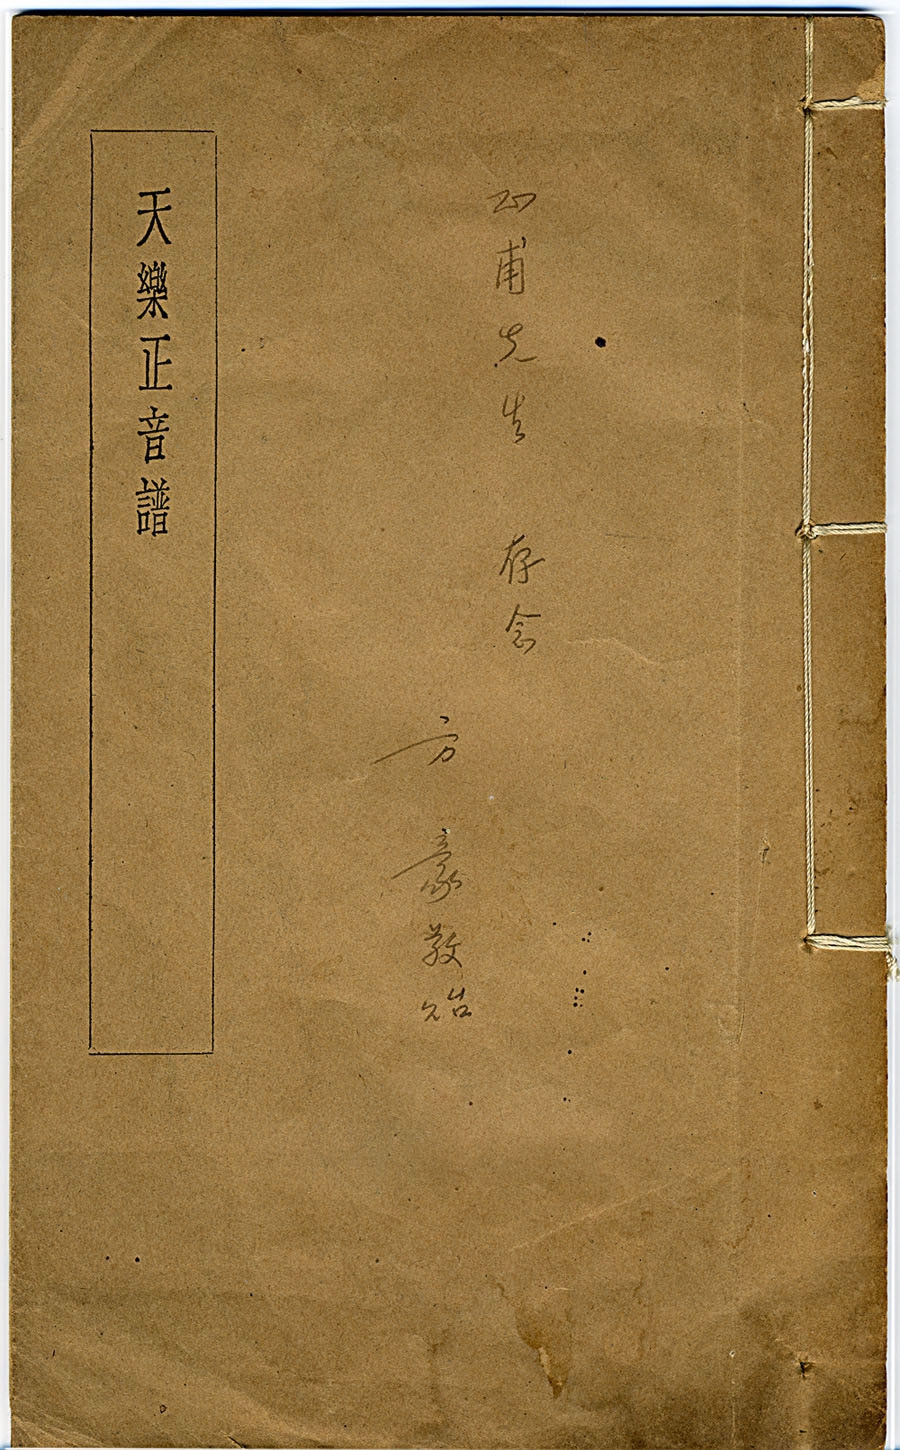 甫先生 存念
方豪敬贻
天樂正音譜